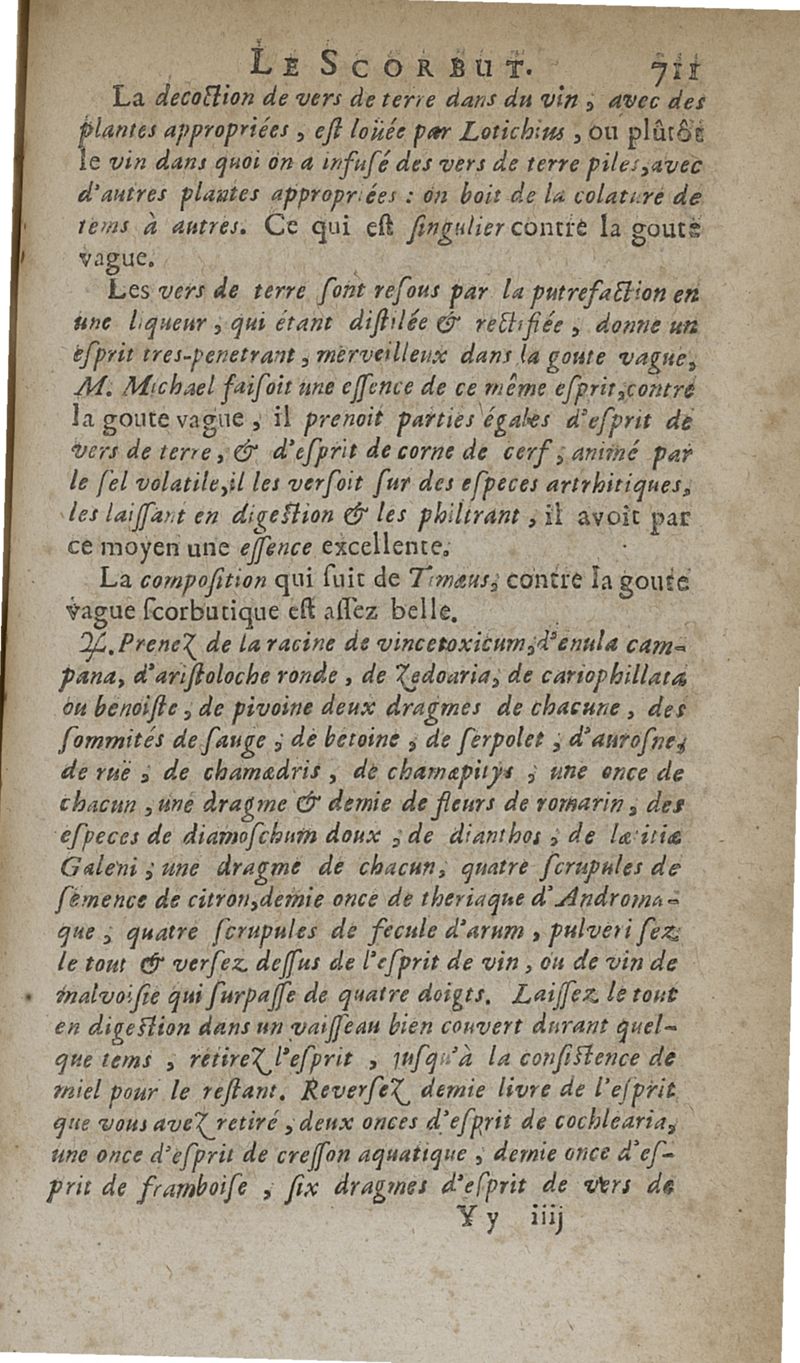 LE SCORBUT. 711
La decoction de vers de terre dans du vin, avec des
plantes appropriées, eſt loüée par Lotichius, ou plûtôt
le vin dans quoi on a infuſé des vers de terre pilés, avec
d'autres plantes appropriées : on boit de la colature de
tems à autres. Ce qui eſt ſingulier contre la goute
vague.
Les vers de terre ſont reſous par la putrefaction en
une liqueur, qui étant diſtilée & rectifiée, donne un
eſprit tres-penetrant, merveilleux dans la goute vague,
M. Michael faiſoit une eſſence de ce même eſprit, contre
la goute vague, il prenoit parties égales d'eſprit de
vers de terre, & d'eſprit de corne de cerf, animé par
le ſel volatile, il les verſoit ſur des eſpeces artrhitiques,
les laiſſant en digeſtion & les philtrant, il avoit par
ce moyen une eſſence excellente.
La compoſition qui ſuit de Timæus, contre la goute
vague ſcorbutique eſt aſſez belle.
♃. Prenez de la racine de vincetoxicum, d'enula cam-
pana, d'ariſtoloche ronde, de Zedoaria, de cariophillata
ou benoiſte, de pivoine deux dragmes de chacune, des
ſommités de ſauge, de betoine, de ſerpolet, d'auroſne,
de ruë, de chamædris, de chamæpitys, une once de
chacun, une dragme & demie de fleurs de romarin, des
eſpeces de diamoſchum doux, de dianthos, de lætitiæ
Galeni, une dragme de chacun, quatre ſcrupules de
ſemence de citron, demie once de theriaque d'Androma-
que, quatre ſcrupules de fecule d'arum, pulveriſez
le tout & verſez deſſus de l'eſprit de vin, ou de vin de
malvoiſie qui ſurpaſſe de quatre doigts. Laiſſez le tout
en digeſtion dans un vaiſſeau bien couvert durant quel-
que tems, retirez l'eſprit, juſqu'à la conſiſtence de
miel pour le reſtant. Reverſez demie livre de l'eſprit
que vous avez retiré, deux onces d'eſprit de cochlearia,
une once d'eſprit de creſſon aquatique, demie once d'eſ-
prit de framboiſe, ſix dragmes d'eſprit de vers de
Y y iiij